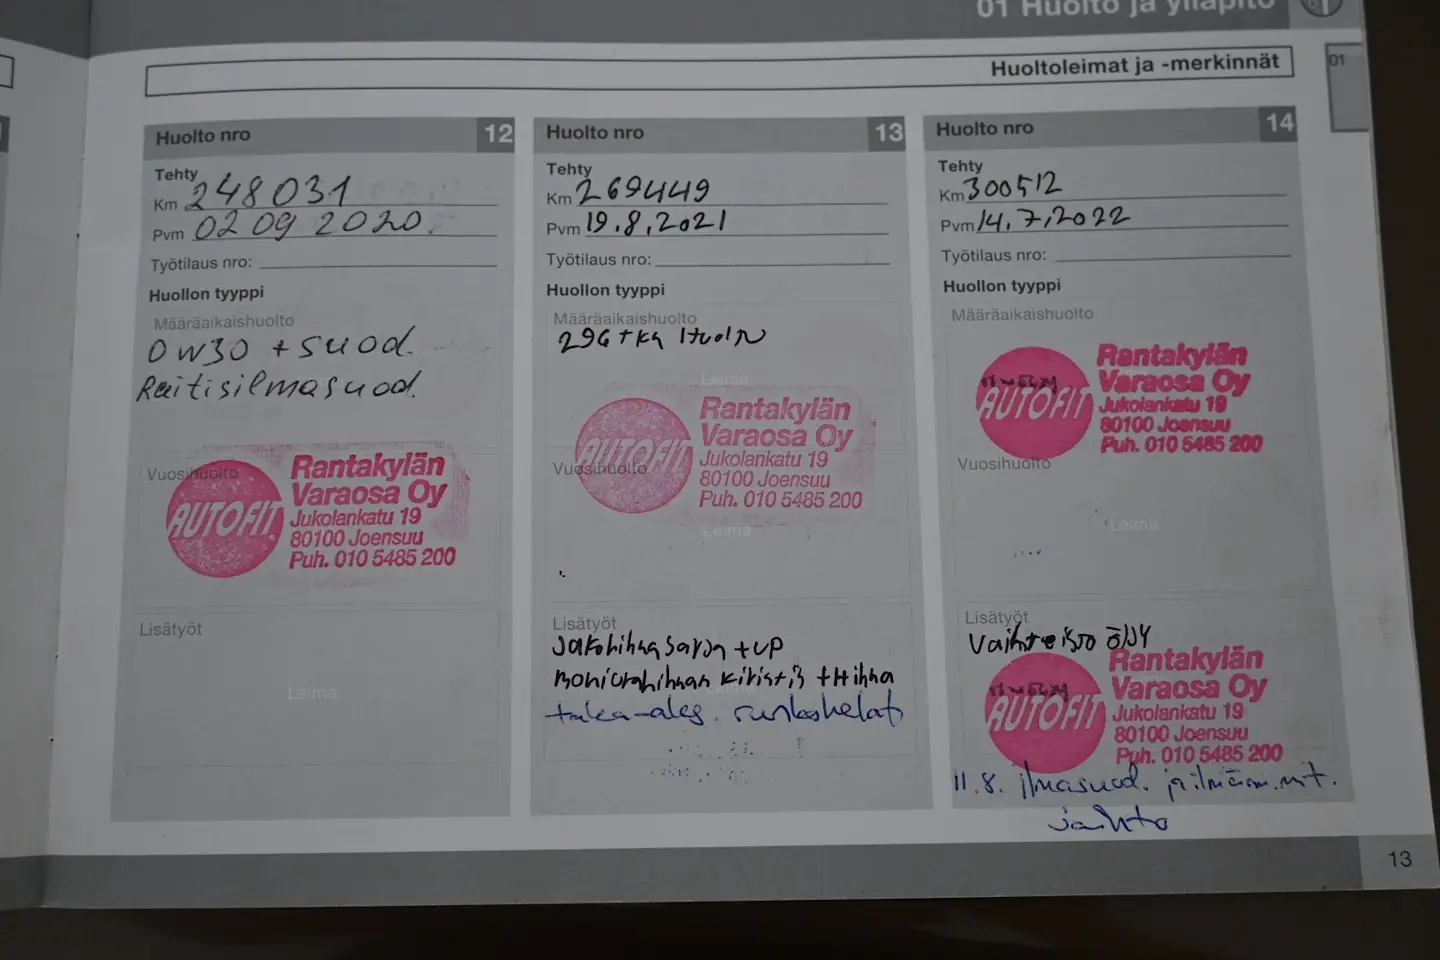 01 Huolto ja ylläpito
Huoltoleimat ja -merkinnät
01
Huolto nro 12
Tehty
Km 248031
Pvm 02 09 2020.
Työtilaus nro:
Huollon tyyppi
Määräaikaishuolto
0W30 + suod.
Raitisilmasuod.
Vuosihuolto
AUTOFIT
Rantakylän
Varaosa Oy
Jukolankatu 19
80100 Joensuu
Puh. 010 5485 200
Lisätyöt
Leima
Huolto nro 13
Tehty
Km 269449
Pvm 19.8.2021
Työtilaus nro:
Huollon tyyppi
Määräaikaishuolto
Leima
AUTOFIT
Rantakylän
Varaosa Oy
Jukolankatu 19
80100 Joensuu
Puh. 010 5485 200
Vuosihuolto
Leima
Lisätyöt
Jakohihnasarja + VP
moniurahihnan kiristin + Hihna
Leima
taka-ales. runkohelat
Huolto nro 14
Tehty
Km 300512
Pvm 14.7.2022
Työtilaus nro:
Huollon tyyppi
Määräaikaishuolto
AUTOFIT
Rantakylän
Varaosa Oy
Jukolankatu 19
80100 Joensuu
Puh. 010 5485 200
Vuosihuolto
Leima
Lisätyöt
Vaihteisto öljy
AUTOFIT
Rantakylän
Varaosa Oy
Jukolankatu 19
80100 Joensuu
Puh. 010 5485 200
11.8. ilmasuod. ja ilmam. mit.
vaihto
13